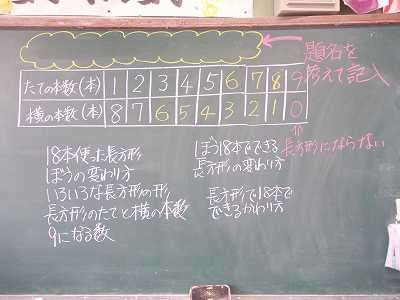 題名を
考えて記入
たての本数(本) 1 2 3 4 5 6 7 8 9
横の本数(本) 8 7 6 5 4 3 2 1 0
長方形にならない
18本使った長方形
ぼうの変わり方
いろいろな長方形の形
長方形のたてと横の本数
9になる数
ぼう18本でできる
長方形の変わり方
長方形で18本で
できるかわり方